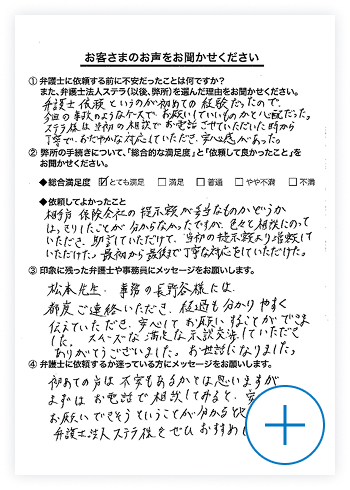 お客さまのお声をお聞かせください
① 弁護士に依頼する前に不安だったことは何ですか?
また、弁護士法人ステラ(以後、弊所)を選んだ理由をお聞かせください。
弁護士依頼というのが初めての経験だったので、
今回の事故のようなケースで、お願いしていいものかと心配だった。
ステラ様は当初の相談でお電話させていただいた時から
丁寧で、おだやかな対応していただき、安心感があった。
② 弊所の手続きについて、「総合的な満足度」と「依頼して良かったこと」を
お聞かせください。
◆総合満足度 ☑とても満足 □満足 □普通 □やや不満 □不満
◆依頼してよかったこと
相手方保険会社の提示額が妥当なものかどうか
はっきりしたことが分からなかったですが、色々と相談にのって
いただき、助言していただけて、当初の提示額より増額して
いただけた。最初から最後まで丁寧な対応をしていただけた。
③ 印象に残った弁護士や事務員にメッセージをお願いします。
松本先生、事務の長野谷様には、
都度ご連絡いただき、経過も分かりやすく
伝えていただき、安心してお願いすることができま
した。スムーズな満足な示談交渉していただき
ありがとうございました。お世話になりました。
④ 弁護士に依頼するか迷っている方にメッセージをお願いします。
初めての方は不安もあるかとは思いますが
まずはお電話で相談してみると、
お願いできそうということが分かると
弁護士法人ステラ様をぜひおすすめ